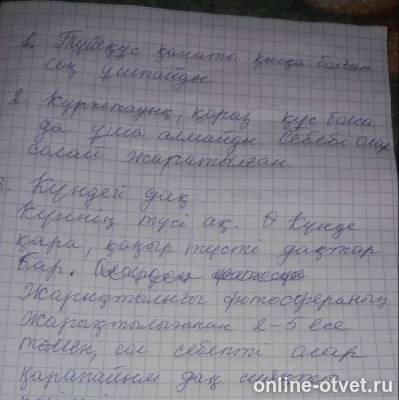 1. Түйеқус қанаты қысқа болған
соң ұшпайды
2. Күркетауық, қораз құс болса
да ұша алмайды. Себебі олар
солай жаратылған.
3. Күндегі дақ.
Күннің түсі ақ. Күнде
қара, қоңыр түсті дақтар
бар.
Жарықтылығы фотосфераның
жарықтылығынан 2-5 есе
төмен, сол себепті олар
қарапайым дақ сияқты
online-otvet.ru